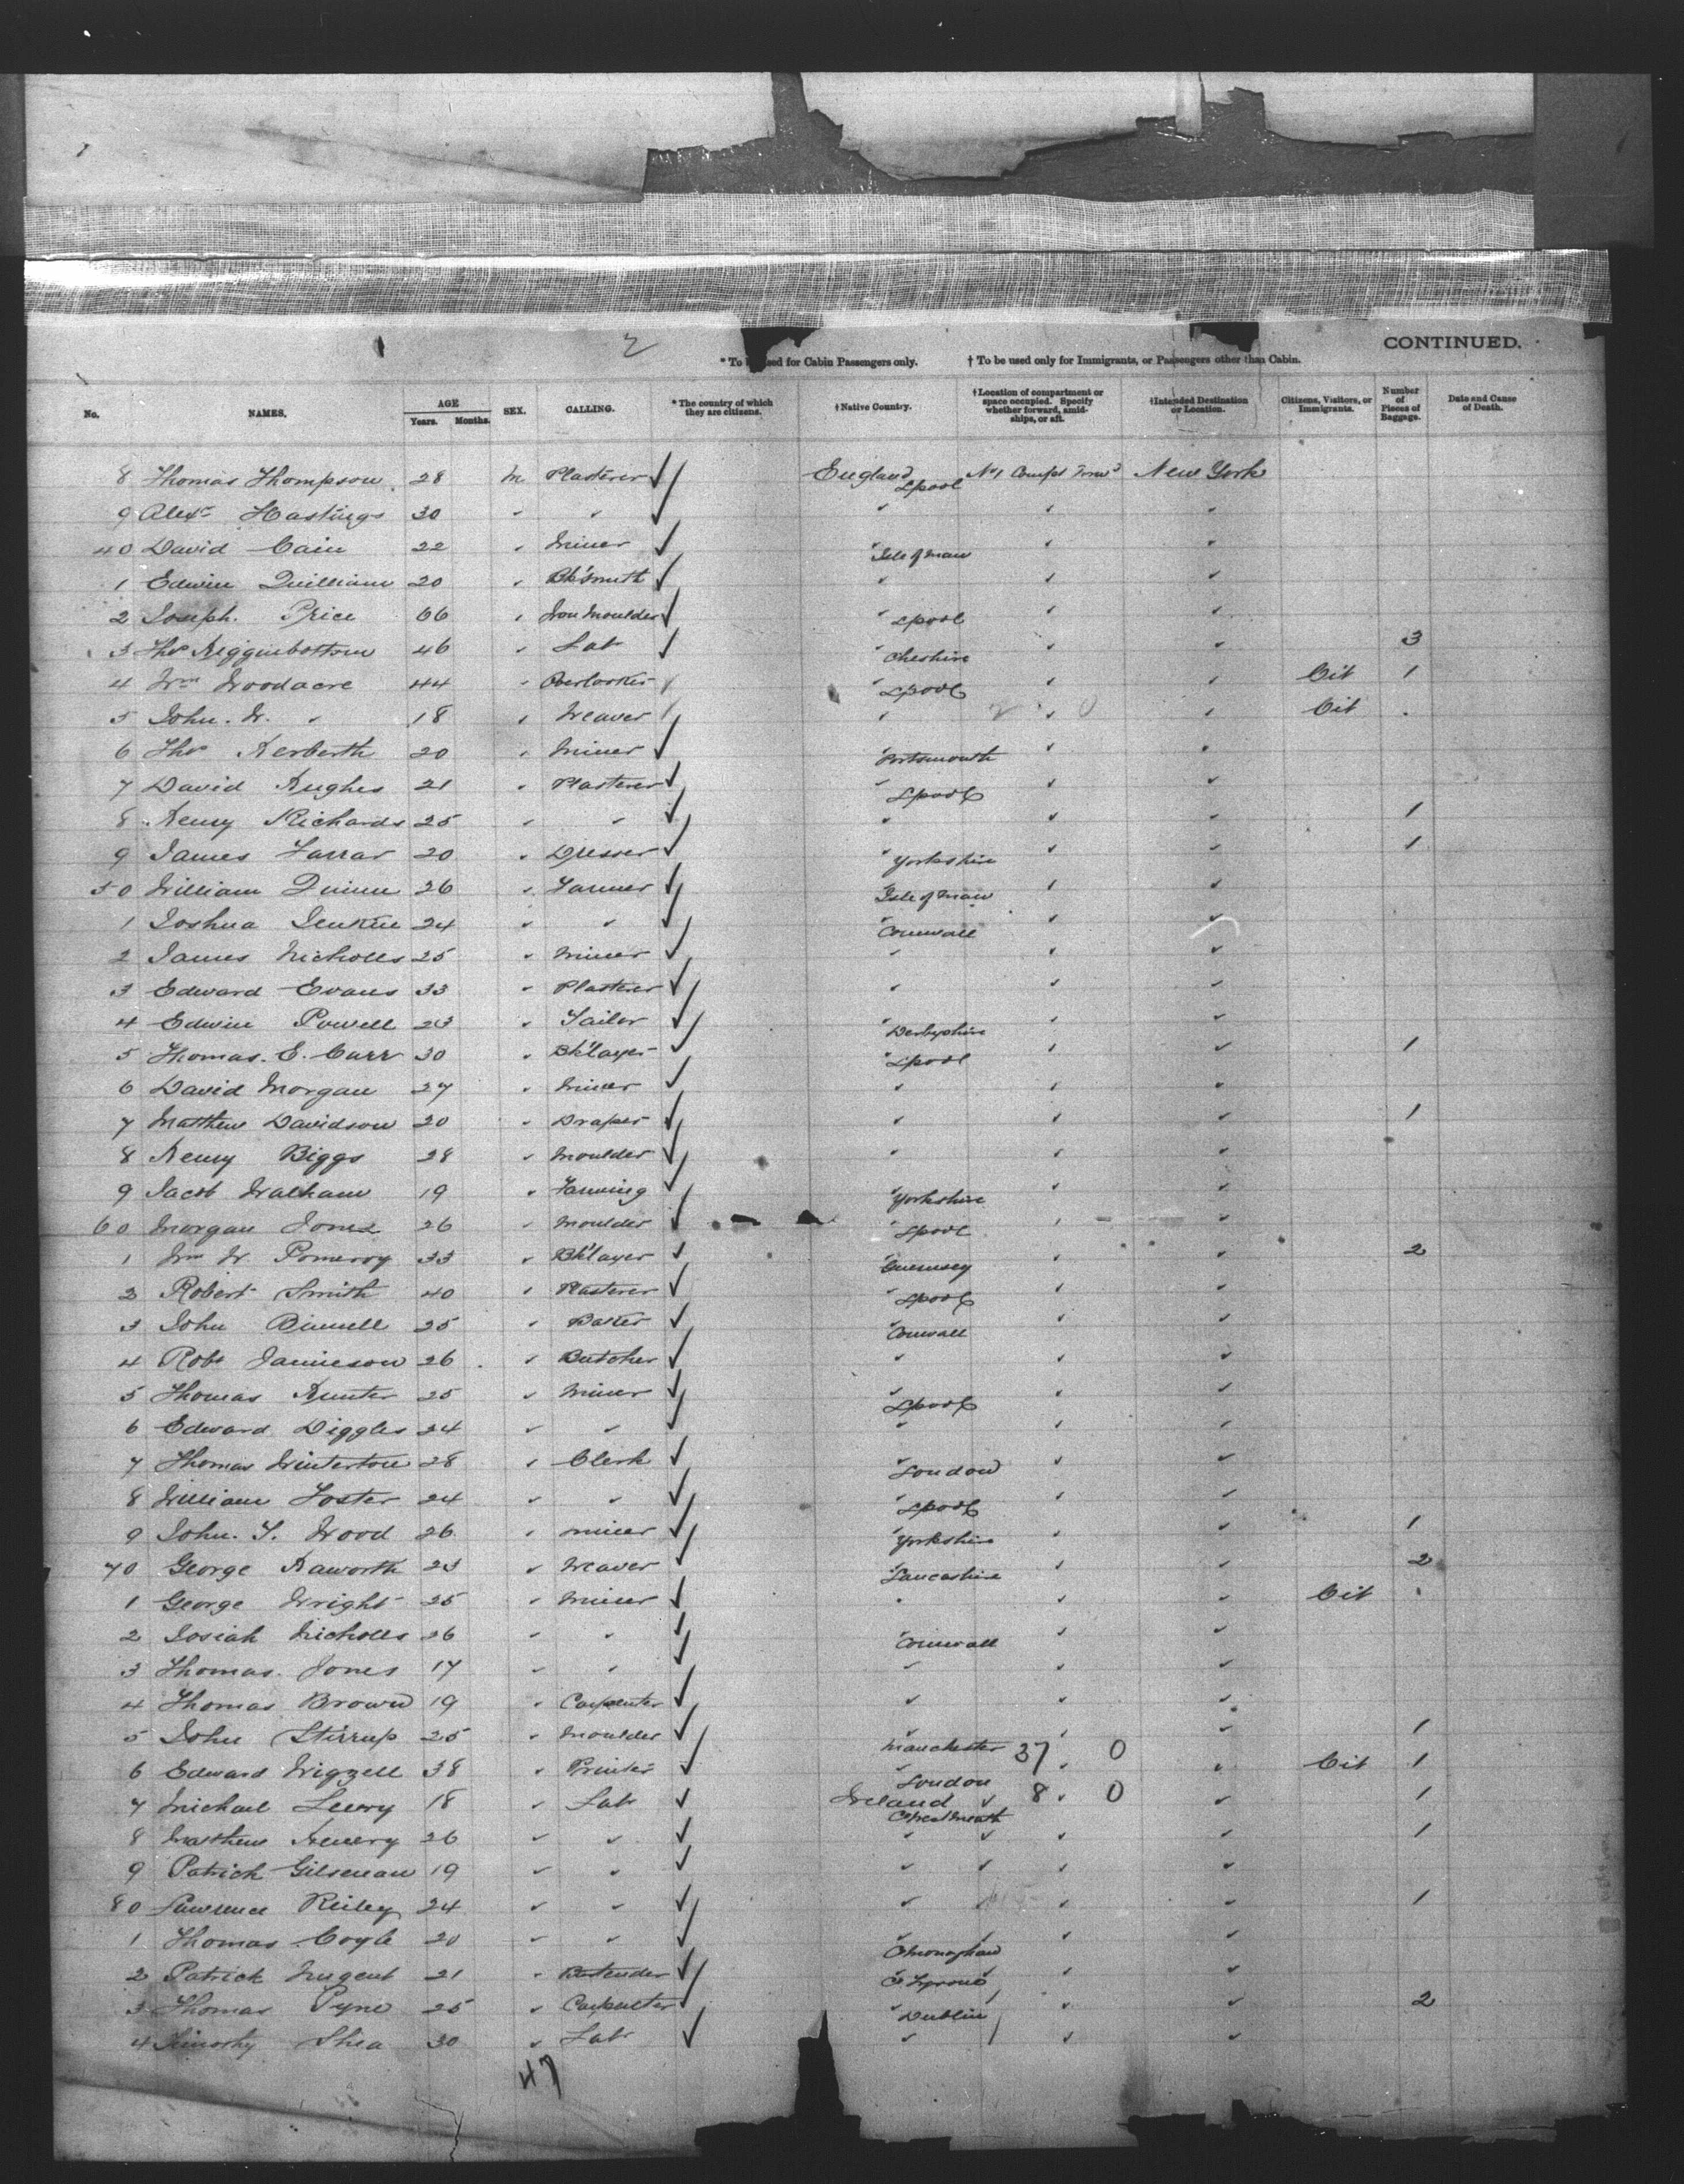 2
CONTINUED.
* To be used for Cabin Passengers only. † To be used only for Immigrants, or Passengers other than Cabin.
No. NAMES. AGE Years. Months. SEX. CALLING. * The country of which they are citizens. † Native Country. † Location of compartment or space occupied. Specify whether forward, amidships, or aft. † Intended Destination or Location. Citizens, Visitors, or Immigrants. Number of Pieces of Baggage. Date and Cause of Death.
8 Thomas Thompson 28 M Plasterer ✓ England L'pool No 1 Compt Forwd New York
9 Alexr Hastings 30 " " ✓ " " "
40 David Cain 22 " Miner ✓ " Isle of Man " "
1 Edwin Quilliam 20 " Bk'smith ✓ " " "
2 Joseph Price 66 " Iron Moulder ✓ " L'pool " "
3 Thos Higginbottom 46 " Lab ✓ " Cheshire " " 3
4 Wm Woodacre 44 " Overlooker ✓ " L'pool " " Cit 1
5 John. W. " 18 " Weaver ✓ " " " Cit
6 Thos Herberth 20 " Miner ✓ " Portsmouth " "
7 David Hughes 21 " Plasterer ✓ " L'pool " "
8 Henry Richards 25 " " ✓ " " " 1
9 James Farrar 20 " Dresser ✓ " Yorkshire " " 1
50 William Quinn 26 " Farmer ✓ " Isle of Man " "
1 Joshua Jenkin 24 " " ✓ " Cornwall " "
2 James Nicholls 25 " Miner ✓ " " "
3 Edward Evans 33 " Plasterer ✓ " " "
4 Edwin Powell 23 " Tailor ✓ " Derbyshire " "
5 Thomas. E. Carr 30 " Bk'layer ✓ " L'pool " " 1
6 David Morgan 27 " Miner ✓ " " "
7 Matthew Davidson 20 " Draper ✓ " " " 1
8 Henry Biggs 28 " Moulder ✓ " " "
9 Jacob Walham 19 " Farming ✓ " Yorkshire " "
60 Morgan Jones 26 " Moulder ✓ " L'pool " "
1 Wm W. Pomeroy 33 " Bk'layer ✓ " Guernsey " " 2
2 Robert Smith 40 " Plasterer ✓ " L'pool " "
3 John 25 " Baker ✓ " Cornwall " "
4 Robt Jamieson 26 " Butcher ✓ " " "
5 Thomas Hunter 25 " Miner ✓ " L'pool " "
6 Edward Diggles 24 " " ✓ " " "
7 Thomas Winterton 28 " Clerk ✓ " London " "
8 William Foster 24 " " ✓ " L'pool " "
9 John. T. Wood 26 " Miner ✓ " Yorkshire " " 1
70 George Haworth 23 " Weaver ✓ " Lancashire " " 2
1 George Wright 25 " Miner ✓ " " " Cit
2 Josiah Nicholls 26 " " ✓ " Cornwall " "
3 Thomas Jones 17 " " ✓ " " "
4 Thomas Brown 19 " Carpenter ✓ " " "
5 John Stirrup 25 " Moulder ✓ " Manchester " " 1
6 Edward Wigzell 38 " Printer ✓ " London 37 " 0 " Cit 1
7 Michael Leery 18 " Lab ✓ Ireland Co Westmeath 8 " 0 " 1
8 Matthew 26 " " ✓ " " " " 1
9 Patrick Gilsenan 19 " " ✓ " " " "
80 Lawrence Reiley 24 " " ✓ " " " 1
1 Thomas Coyle 20 " " ✓ " Co Monaghan " "
2 Patrick Nugent 21 " Bartender ✓ " Co Tyrone " "
3 Thomas Pyne 25 " Carpenter ✓ " Dublin " " 2
4 Timothy Shea 30 " Lab ✓ " " "
47